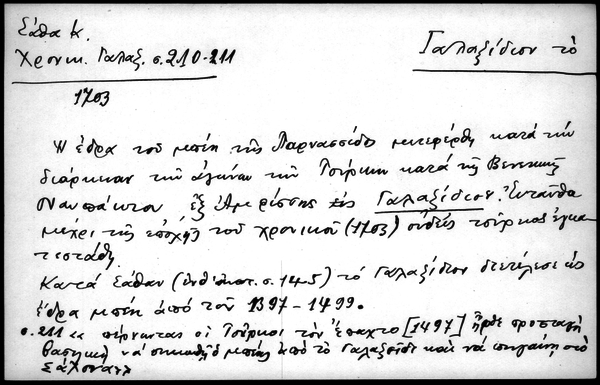 Σάθα Κ.
Χρονικ. Γαλαξ. σ. 210-211
Γαλαξίδιον το
1703
Η έδρα του μπέη της Παρνασσίδος μετεφέρθη κατά την
διάρκειαν των αγώνων των Τούρκων κατά της Βενετικής
Ναυπάκτου εξ Αμφίσσης εις Γαλαξίδιον. Ενταύθα
μέχρι της εποχής του χρονικού (1703) ουδείς τούρκος εγκα-
τεστάθη
Κατά Σάθαν (ενθ' ανωτ. σ. 145) το Γαλαξίδιον διετέλεσε ως
έδρα μπέη από του 1397-1499.
σ. 211 << παίρνωντας οι Τούρκοι τον Έπαχτο [1497] ήρθε προσταγή
βασιλική να σηκωθή ο μπέης από το Γαλαξείδι και να πηγαίνη στο
Σάλονα >>